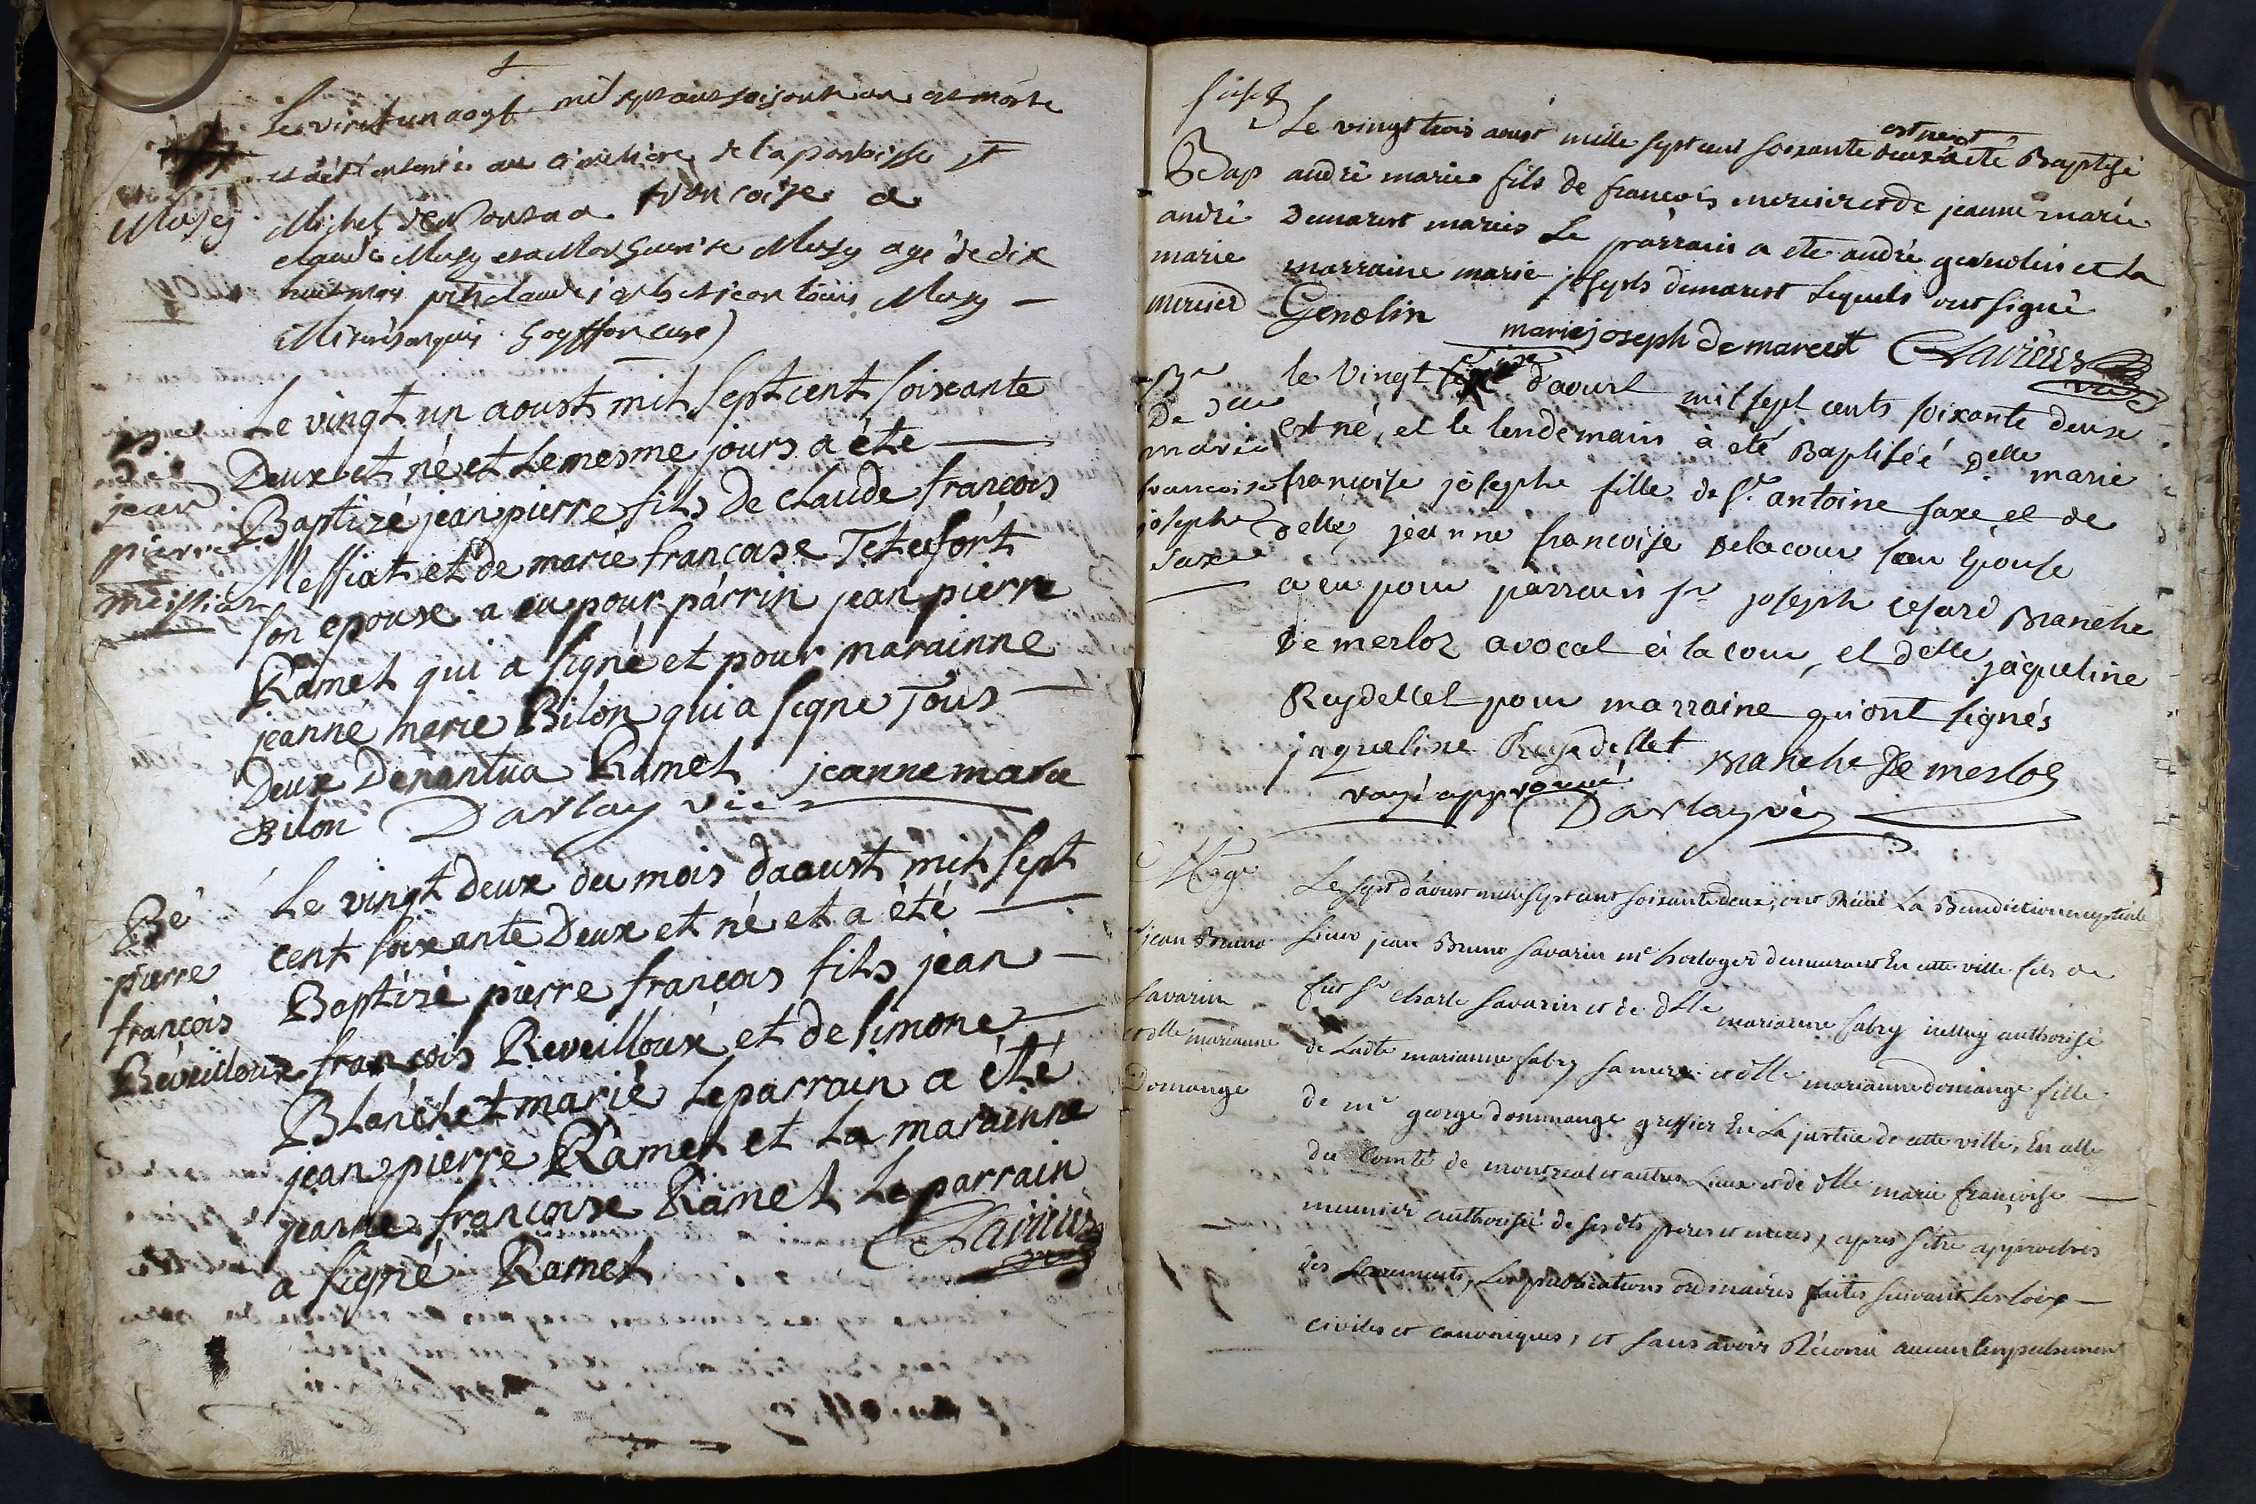 Le vint un aoust mil sept cent soisente est morte
et a été enterrée au cimetière de la paroisse St
Michel de Nantua francoise
Musy
claude Musy et a Marguerite Musy agé de dix
huit mois claude et jean louis Musy
curé
Le vingt un aoust mil sept cent soixante
Deux et né et le mesme jours a été
Baptizé jean pierre fils de claude françois
Messiat et de marie françoise Tetefort
son epouse a eu pour parrin jean pierre
Ramel qui a signé et pour marainne
jeanne marie Bilon qui a signe Tous
Deux Denantua Ramel jeanne marie
Bilon Darlay vic
jean
pierre
messiat
Le vingt deux du mois daoust mil sept
cent soixante Deux et né et a été
Baptizé pierre françois fils jean
françois Reveilloux et de simone
Blanchet marié le parrain a été
jean pierre Ramel et la marainne
jeanne françoise Ramel le parrain
a signé Ramel
Be
pierre
françois
Reveilloux
Le vingt trois aoust mille sept cent soixante deux est né et a été Baptisé
andré marie fils de françois mercier et de jeanne marie
Demarest mariés Le parrain a ete andré genolin et la
marraine marie joseph demarest lequels ont signé
Genolin marie joseph de marest
Bap
andré
marie
mercier
le Vingt six d'aoust mil sept cents soixante deux
est né, et le lendemain à été Baptisée delle marie
françoise josephe fille de Sr antoine saxe et de
delle jeanne françoise Delacour son Epouse
a eu pour parrain Sr joseph cesard Blanche
de merloz avocat à la cour, et delle jaqueline
Reydellet pour marraine qui ont signés
jaqueline Reydellet Blanche De merloz
rayé approuvé Darlay vic
De Delle
marie
francoise
josephe
Saxe
Le sept d'aoust mil sept cent soixante deux, ont Recue La Benediction nuptiale
Sieur jean Bruno Savarin me horloger demeurant En cette ville fils de
feu Sr Charle Savarin et de dlle marianne fabry icelluy authorisé
de Ladte marianne fabry sa mere et dlle marianne domange fille
de me george dommange greffier En La justice de cette ville, En celle
du Comté de montreal et autres Lieux et de dlle marie françoise
meunier authorisée de ses dts peres et meres, apres s'etre approchés
des sacrements, Les publications ordinaires faites suivant Les Loix
civiles et canoniques, et sans avoir Reconnu aucun Empechement
Mge
jean Bruno
Savarin
et dlle marianne
Domange